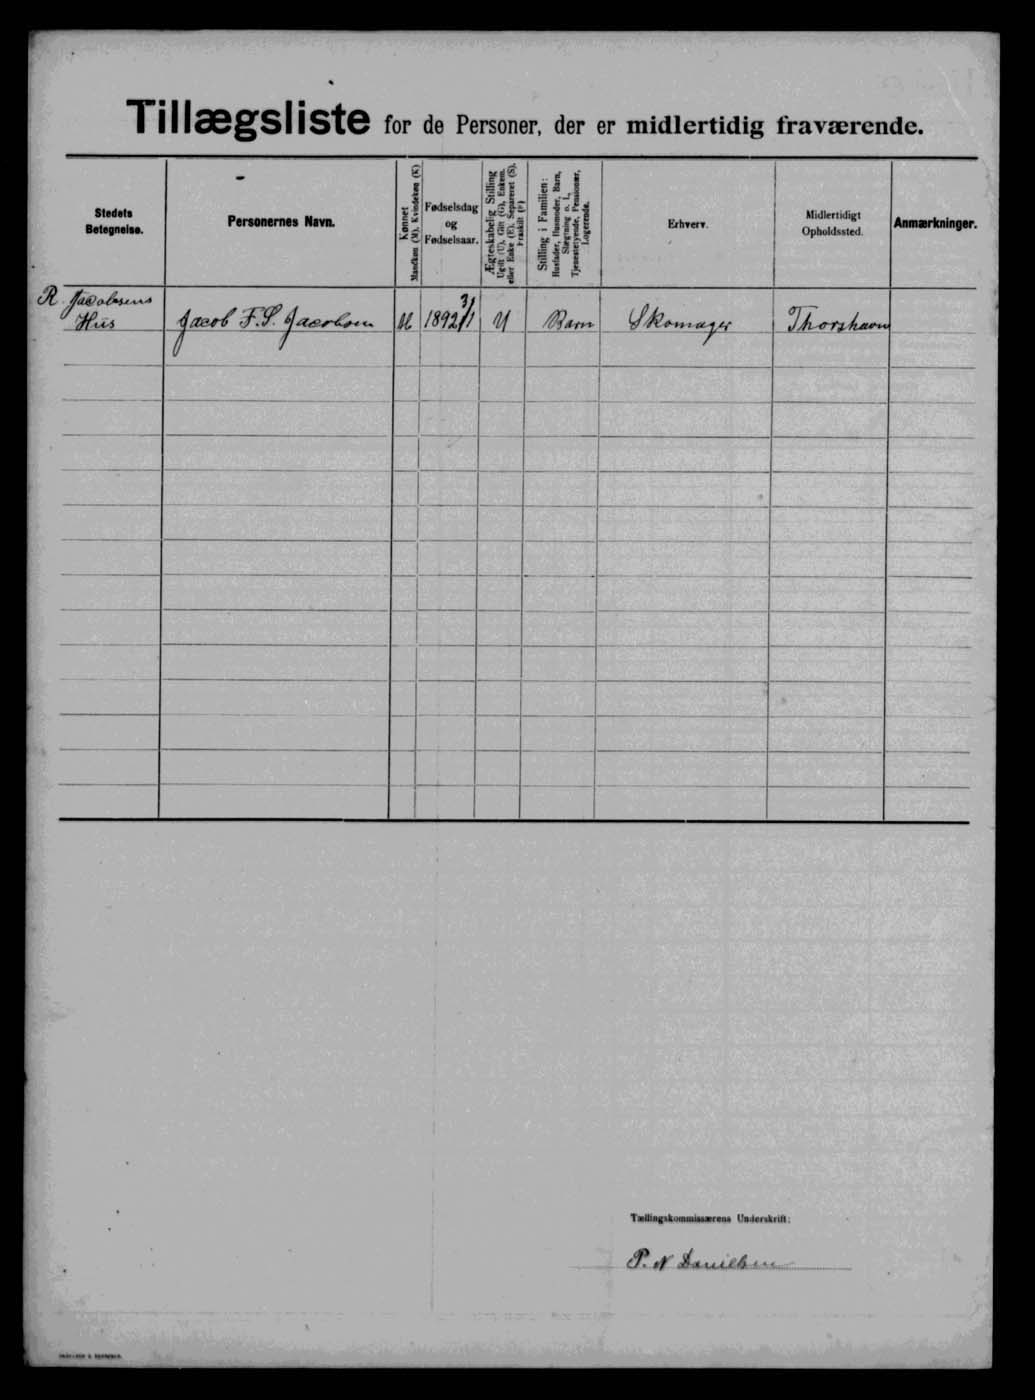 Tillægsliste for de Personer, der er midlertidig fraværende.
Stedets Betegnelse.
Personernes Navn.
Kønnet
Mandkøn (M). Kvindekøn (K)
Fødselsdag og Fødselsaar.
Ægteskabelig Stilling
Ugift (U), Gift (G), Enkem. eller Enke (E), Separeret (S), Fraskilt (F)
Stilling i Familien:
Husfader, Husmoder, Barn, Slægtning o. l., Tjenestetyende, Pensionær, Logerende.
Erhverv.
Midlertidigt Opholdssted.
Anmærkninger.
R. Jacobsens
Hus Jacob F. S. Jacobsen M 1892 3/1 U Barn Skomager Thorshavn
Tællingskommissærens Underskrift:
P. N Danielsen